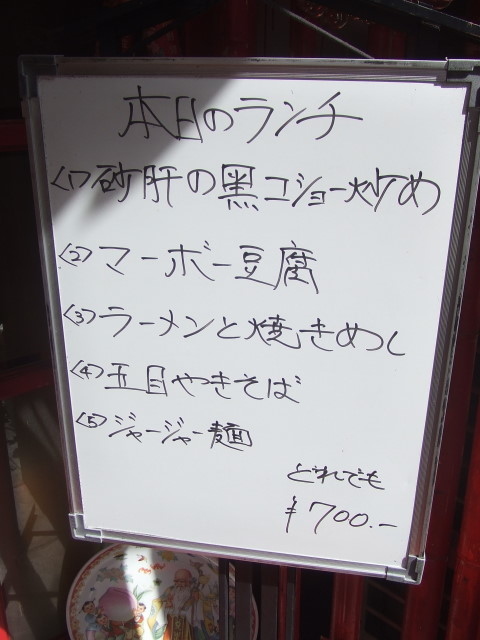 本日のランチ
<1>砂肝の黒コショー炒め
<2>マーボー豆腐
<3>ラーメンと焼きめし
<4>五目やきそば
<5>ジャージャー麺
どれでも
¥700.-